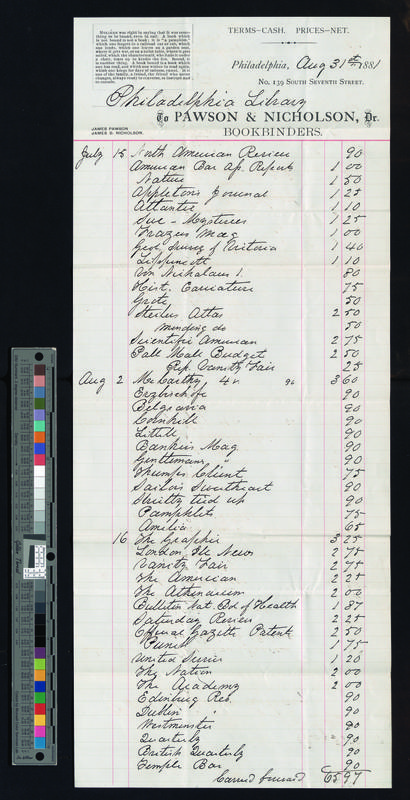 TERMS—CASH. PRICES—NET.
Philadelphia, Aug 31st 1881
No. 139 South Seventh Street.
Philadelphia Library
To PAWSON & NICHOLSON, Dr.
JAMES PAWSON.
JAMES B. NICHOLSON.
BOOKBINDERS.
July 15 North American Review 90
American Bar Ap. Reports 1 00
Nature 1 50
Appleton's Journal 1 25
Atlantic 1 10
Sue - Mysteries 1 25
Frazers Mag 1 00
Geol. Survey of Victoria 1 40
Lippincott 1 10
Von Nikolaus I. 80
Hist. Caricature 75
Grote 50
Stielers Atlas 2 50
mending do 50
Scientific American 2 75
Pall Mall Budget 2 50
Rep. Vanity Fair 25
Aug 2 McCarthy 4 v. 90 3 60
Erzbischofe 90
Belgravia 90
Cornhill 90
Littell 90
Bankers Mag 90
Gentlemans " 90
Thumps Client 75
Sailors Sweetheart 90
Strictly tied up 90
Pamphlets 75
Amelia 65
16 The Graphic 3 25
London Ill. News 2 75
Vanity Fair 2 75
The American 2 25
The Athenaeum 2 00
Bulletin Nat. Bd of Health 1 87
Saturday Review 2 25
Official Gazette Patent 2 50
Punch 1 75
United Service 1 20
The Nation 2 00
The Academy 2 00
Edinburg Rev. 90
Dublin " 90
Westminster 90
Quarterly 90
British Quarterly 90
Temple Bar 90
Carried forward 65 97